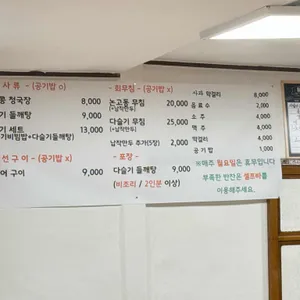 사 류 - (공기밥 o)
콩 청국장 8,000
기 들깨탕 9,000
기 세트 13,000
기비빔밥+다슬기들깨탕)
선 구 이 - (공기밥 x)
어 구이 9,000
- 회무침 - (공기밥 x)
논고동 무침 20,000
(+납작만두)
다슬기 무침 25,000
(+납작만두)
납작만두 추가(5장) 2,000
- 포장 -
다슬기 들깨탕 9,000
(비조리 / 2인분 이상)
사과 막걸리 8,000
음료수
소 주 4,000
맥 주 4,000
막걸리 4,000
공기밥 1,000
※매주 월요일은 휴무입니다
부족한 반찬은 셀프바를
이용해주세요.